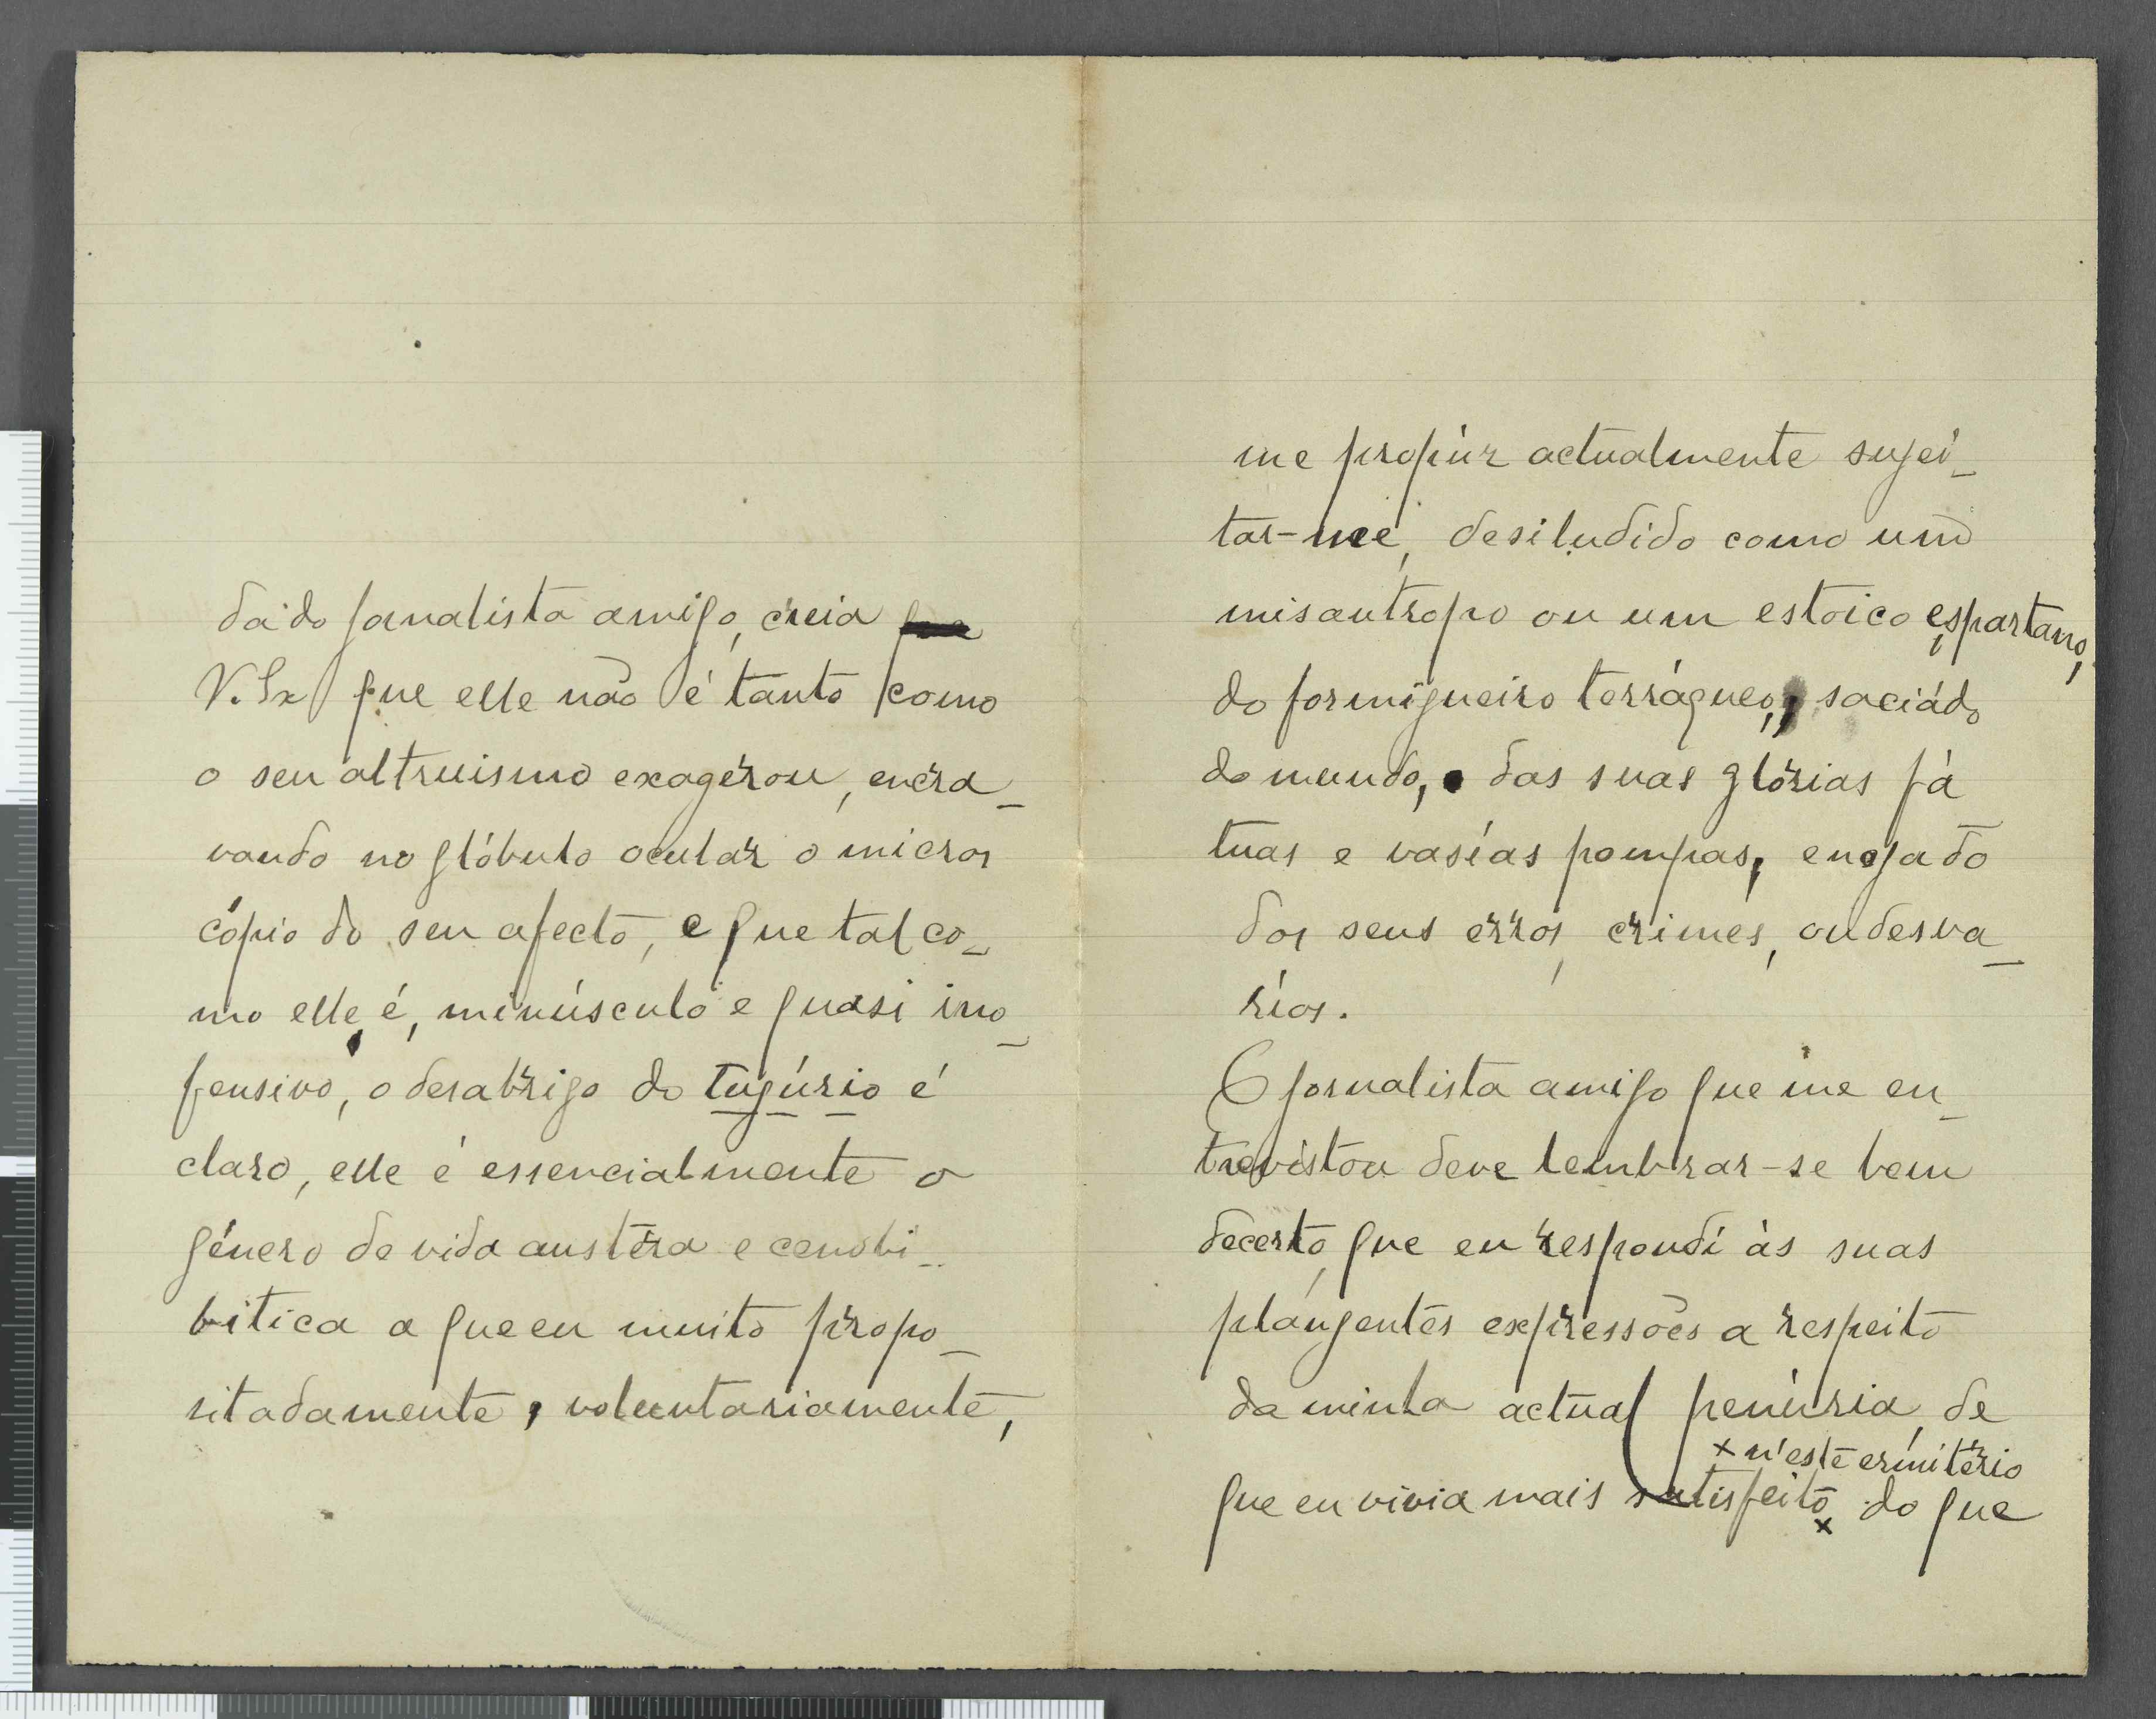 da do jornalista amigo, creia
V. Ex que elle não é tanto como
o seu altruismo exagerou, encra_
vando no glóbulo ocular o micros
cópio do seu afecto, e que tal co_
mo elle é, minúsculo e quasi ino_
fensivo, o desabrigo do tugúrio é
claro, elle é essencialmente o
género de vida austéra e cenobi_
bitica a que eu muito propo_
sitadamente, voluntariamente,
me propuz actualmente sujei_
tar-me, desiludido como um
misantropo ou um estoico espartano,
do formigueiro terráqueo, saciádo
do mundo, das suas glórias fá
tuas e vasías pompas, enojado
dos seus erros, crimes, ou desva_
ríos.
O jornalista amigo que me en_
trevistou deve lembrar-se bem
decerto, que eu respondi às suas
plangentes expressões a respeito
da minha actual penúria, de
x n'este ermitério
que eu vivia mais satisfeito x do que